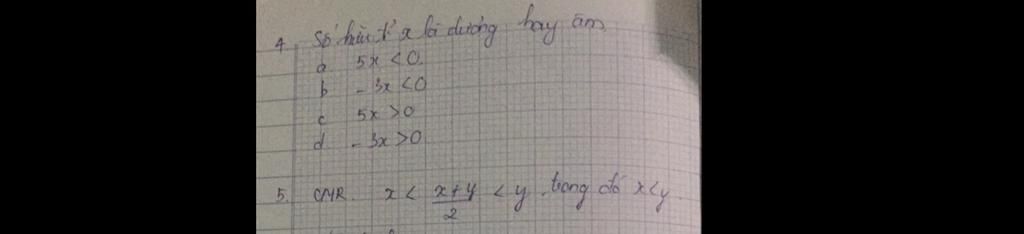 4, Số hữu tỉ x là dương hay âm.
a 5x < 0.
b - 3x < 0
c 5x > 0
d - 3x > 0
5. CMR. x < \frac{x+y}{2} < y, trong đó x < y.